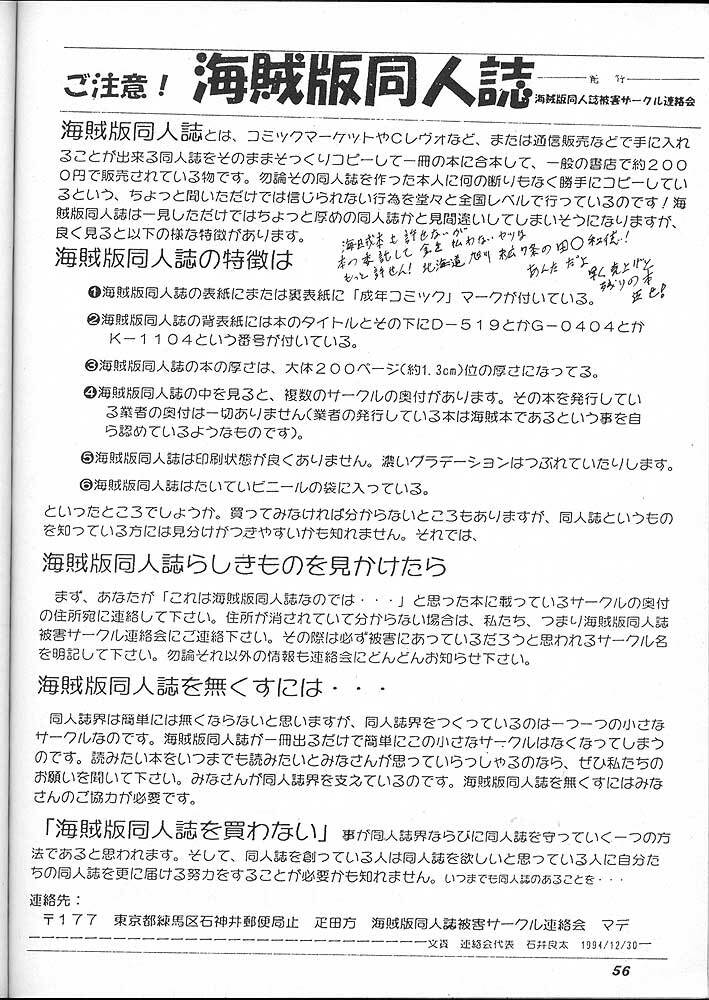 ご注意！ 海賊版同人誌
発 行
海賊版同人誌被害サークル連絡会
海賊版同人誌とは、コミックマーケットやCレヴォなど、または通信販売などで手に入れ
ることが出来る同人誌をそのままそっくりコピーして一冊の本に合本して、一般の書店で約２００
０円で販売されている物です。勿論その同人誌を作った本人に何の断りもなく勝手にコピーしてい
るという、ちょっと聞いただけでは信じられない行為を堂々と全国レベルで行っているのです！海
賊版同人誌は一見しただけではちょっと厚めの同人誌かと見間違いしてしまいそうになりますが、
良く見ると以下の様な特徴があります。
海賊本も許せないが
本の委託して金を払わないヤツは
もっと許せん！北海道旭川
あんただよ
売上げと
残りの本
海賊版同人誌の特徴は
❶海賊版同人誌の表紙にまたは裏表紙に「成年コミック」マークが付いている。
❷海賊版同人誌の背表紙には本のタイトルとその下にＤ－５１９とかＧ－０４０４とか
Ｋ－１１０４という番号が付いている。
❸海賊版同人誌の本の厚さは、大体２００ページ(約1.3cm)位の厚さになってる。
❹海賊版同人誌の中を見ると、複数のサークルの奥付があります。その本を発行してい
る業者の奥付は一切ありません(業者の発行している本は海賊本であるという事を自
ら認めているようなものです)。
❺海賊版同人誌は印刷状態が良くありません。濃いグラデーションはつぶれていたりします。
❻海賊版同人誌はたいていビニールの袋に入っている。
といったところでしょうか。買ってみなければ分からないところもありますが、同人誌というもの
を知っている方には見分けがつきやすいかも知れません。それでは、
海賊版同人誌らしきものを見かけたら
まず、あなたが「これは海賊版同人誌なのでは・・・」と思った本に載っているサークルの奥付
の住所宛に連絡して下さい。住所が消されていて分からない場合は、私たち、つまり海賊版同人誌
被害サークル連絡会にご連絡下さい。その際は必ず被害にあっているだろうと思われるサークル名
を明記して下さい。勿論それ以外の情報も連絡会にどんどんお知らせ下さい。
海賊版同人誌を無くすには・・・
同人誌界は簡単には無くならないと思いますが、同人誌界をつくっているのは一つ一つの小さな
サークルなのです。海賊版同人誌が一冊出るだけで簡単にこの小さなサークルはなくなってしまう
のです。読みたい本をいつまでも読みたいとみなさんが思っていらっしゃるのなら、ぜひ私たちの
お願いを聞いて下さい。みなさんが同人誌界を支えているのです。海賊版同人誌を無くすにはみな
さんのご協力が必要です。
「海賊版同人誌を買わない」事が同人誌界ならびに同人誌を守っていく一つの方
法であると思われます。そして、同人誌を創っている人は同人誌を欲しいと思っている人に自分た
ちの同人誌を更に届ける努力をすることが必要かも知れません。いつまでも同人誌のあることを・・・
連絡先：
〒１７７ 東京都練馬区石神井郵便局止 疋田方 海賊版同人誌被害サークル連絡会 マデ
文責 連絡会代表 石井良太 1994/12/30
56